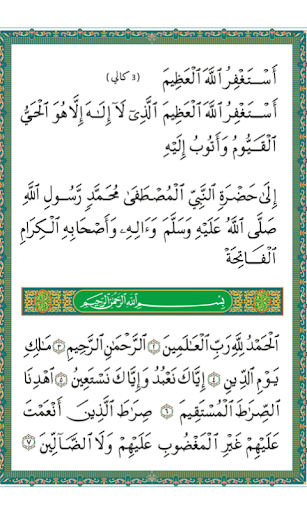 أَسْتَغْفِرُ اللَّهَ الْعَظِيمَ (3 كالي)
أَسْتَغْفِرُ اللَّهَ الْعَظِيمَ الَّذِيْ لَآ إِلَـٰهَ إِلَّا هُوَ الْحَيُّ
الْقَيُّومُ وَأَتُوبُ إِلَيْهِ
إِلَىٰ حَضْرَةِ النَّبِيِّ الْمُصْطَفَىٰ مُحَمَّدٍ رَّسُولِ اللَّهِ
صَلَّى اللَّهُ عَلَيْهِ وَسَلَّمَ وَءَالِهِۦ وَأَصْحَابِهِ الْكِرَامِ
الْفَاتِحَةْ
بِسْمِ اللَّهِ الرَّحْمَٰنِ الرَّحِيمِ
الْحَمْدُ لِلَّهِ رَبِّ الْعَـٰلَمِينَ ۝٢ الرَّحْمَـٰنِ الرَّحِيمِ ۝٣ مَـٰلِكِ
يَوْمِ الدِّينِ ۝٤ إِيَّاكَ نَعْبُدُ وَإِيَّاكَ نَسْتَعِينُ ۝٥ اهْدِنَا
الصِّرَٰطَ الْمُسْتَقِيمَ ۝٦ صِرَٰطَ الَّذِينَ أَنْعَمْتَ
عَلَيْهِمْ غَيْرِ الْمَغْضُوبِ عَلَيْهِمْ وَلَا الضَّآلِّينَ ۝٧